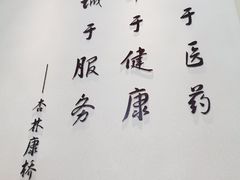 于医药
于健康
诚于服务
——杏林康桥